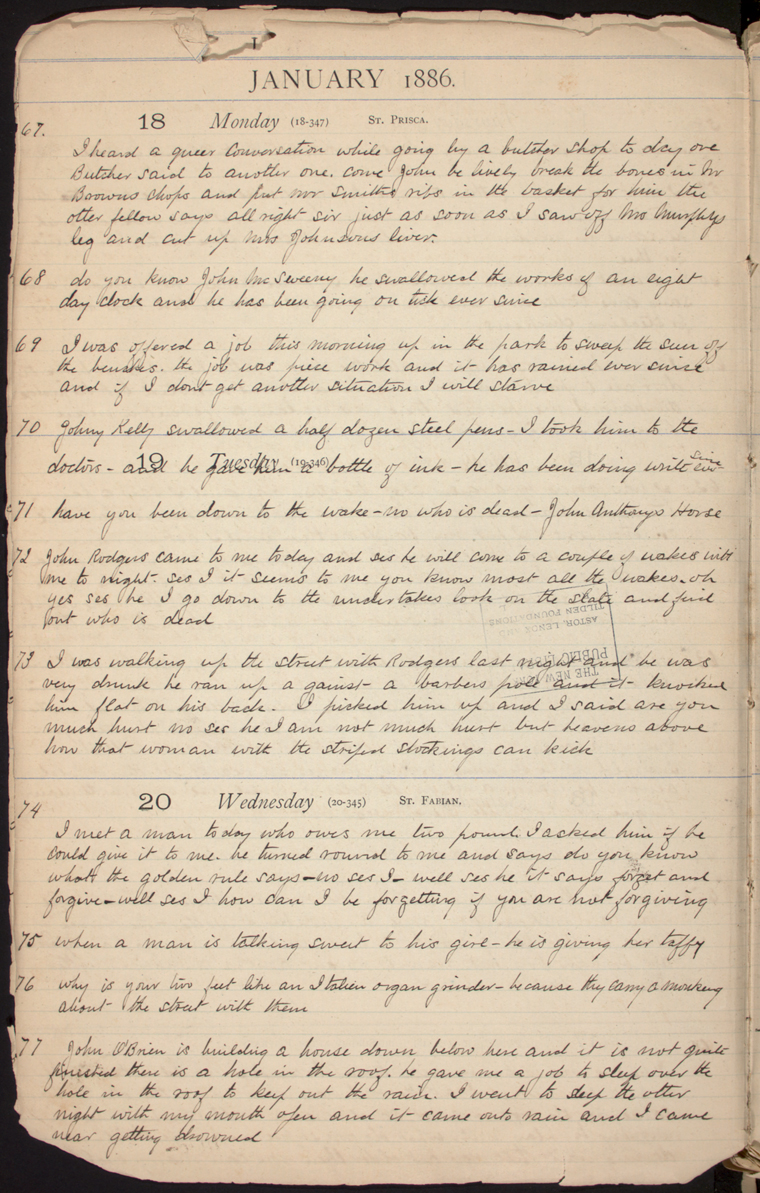 I
JANUARY 1886.
67.
18 Monday (18-347) ST. PRISCA.
I heard a queer conversation while going by a butcher shop to day one
Butcher said to another one. come John be lively break the bones in Mr
Browns chops and put Mr Smiths ribs in the basket for him the
other fellow says all right sir just as soon as I saw off Mrs Murphys
leg and cut up Mrs Johnsons liver.
68 do you know John McSweeny he swallowed the works of an eight
day clock and he has been going on tick ever since
69 I was offered a job this morning up in the park to sweep the sun off
the benches. the job was piece work and it has rained ever since
and if I dont get another situation I will starve
70 Johny Kelly swallowed a half dozen steel pens - I took him to the
19 Tuesday (19-346)
doctors - and he gave him a bottle of ink - he has been doing write ever since
71 have you been down to the wake - no who is dead - John Anthonys Horse
72 John Rodgers came to me today and ses he will come to a couple of wakes with
me to night. ses I it seems to me you know most all the wakes. oh
yes ses he I go down to the undertakes look on the slate and find
out who is dead
THE NEW
PUBLIC
ASTOR, LENOX AND
TILDEN FOUNDATIONS
73 I was walking up the street with Rodgers last night and he was
very drunk he ran up a gainst a barbers pole and it knocked
him flat on his back. I picked him up and I said are you
much hurt no ses he I am not much hurt but heavens above
how that woman with the striped stockings can kick
20 Wednesday (20-345) ST. FABIAN.
74
I met a man today who owes me two pound. I asked him if he
could give it to me. he turned round to me and says do you know
what the golden rule says - no ses I - well ses he it says forget and
forgive - well ses I how can I be forgetting if you are not forgiving
75 when a man is talking sweet to his girl - he is giving her taffy
76 why is your two feet like an Italien organ grinder - because they carry a monkey
about the street with them
77 John O'Brien is building a house down below here and it is not quite
finished there is a hole in the roof. he gave me a job to sleep over the
hole in the roof to keep out the rain. I went to sleep the other
night with my mouth open and it came onto rain and I came
near getting drowned